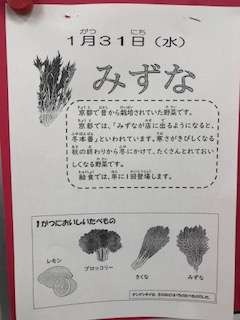 1月31日（水）
みずな
京都で昔から栽培されていた野菜です。
京都では、「みずなが店に出るようになると、
冬本番」といわれています。寒さがきびしくなる
秋の終わりから冬にかけて、たくさんとれておい
しくなる野菜です。
給食では、年に1回登場します。
1がつにおいしいたべもの
レモン
ブロッコリー
きくな
みずな